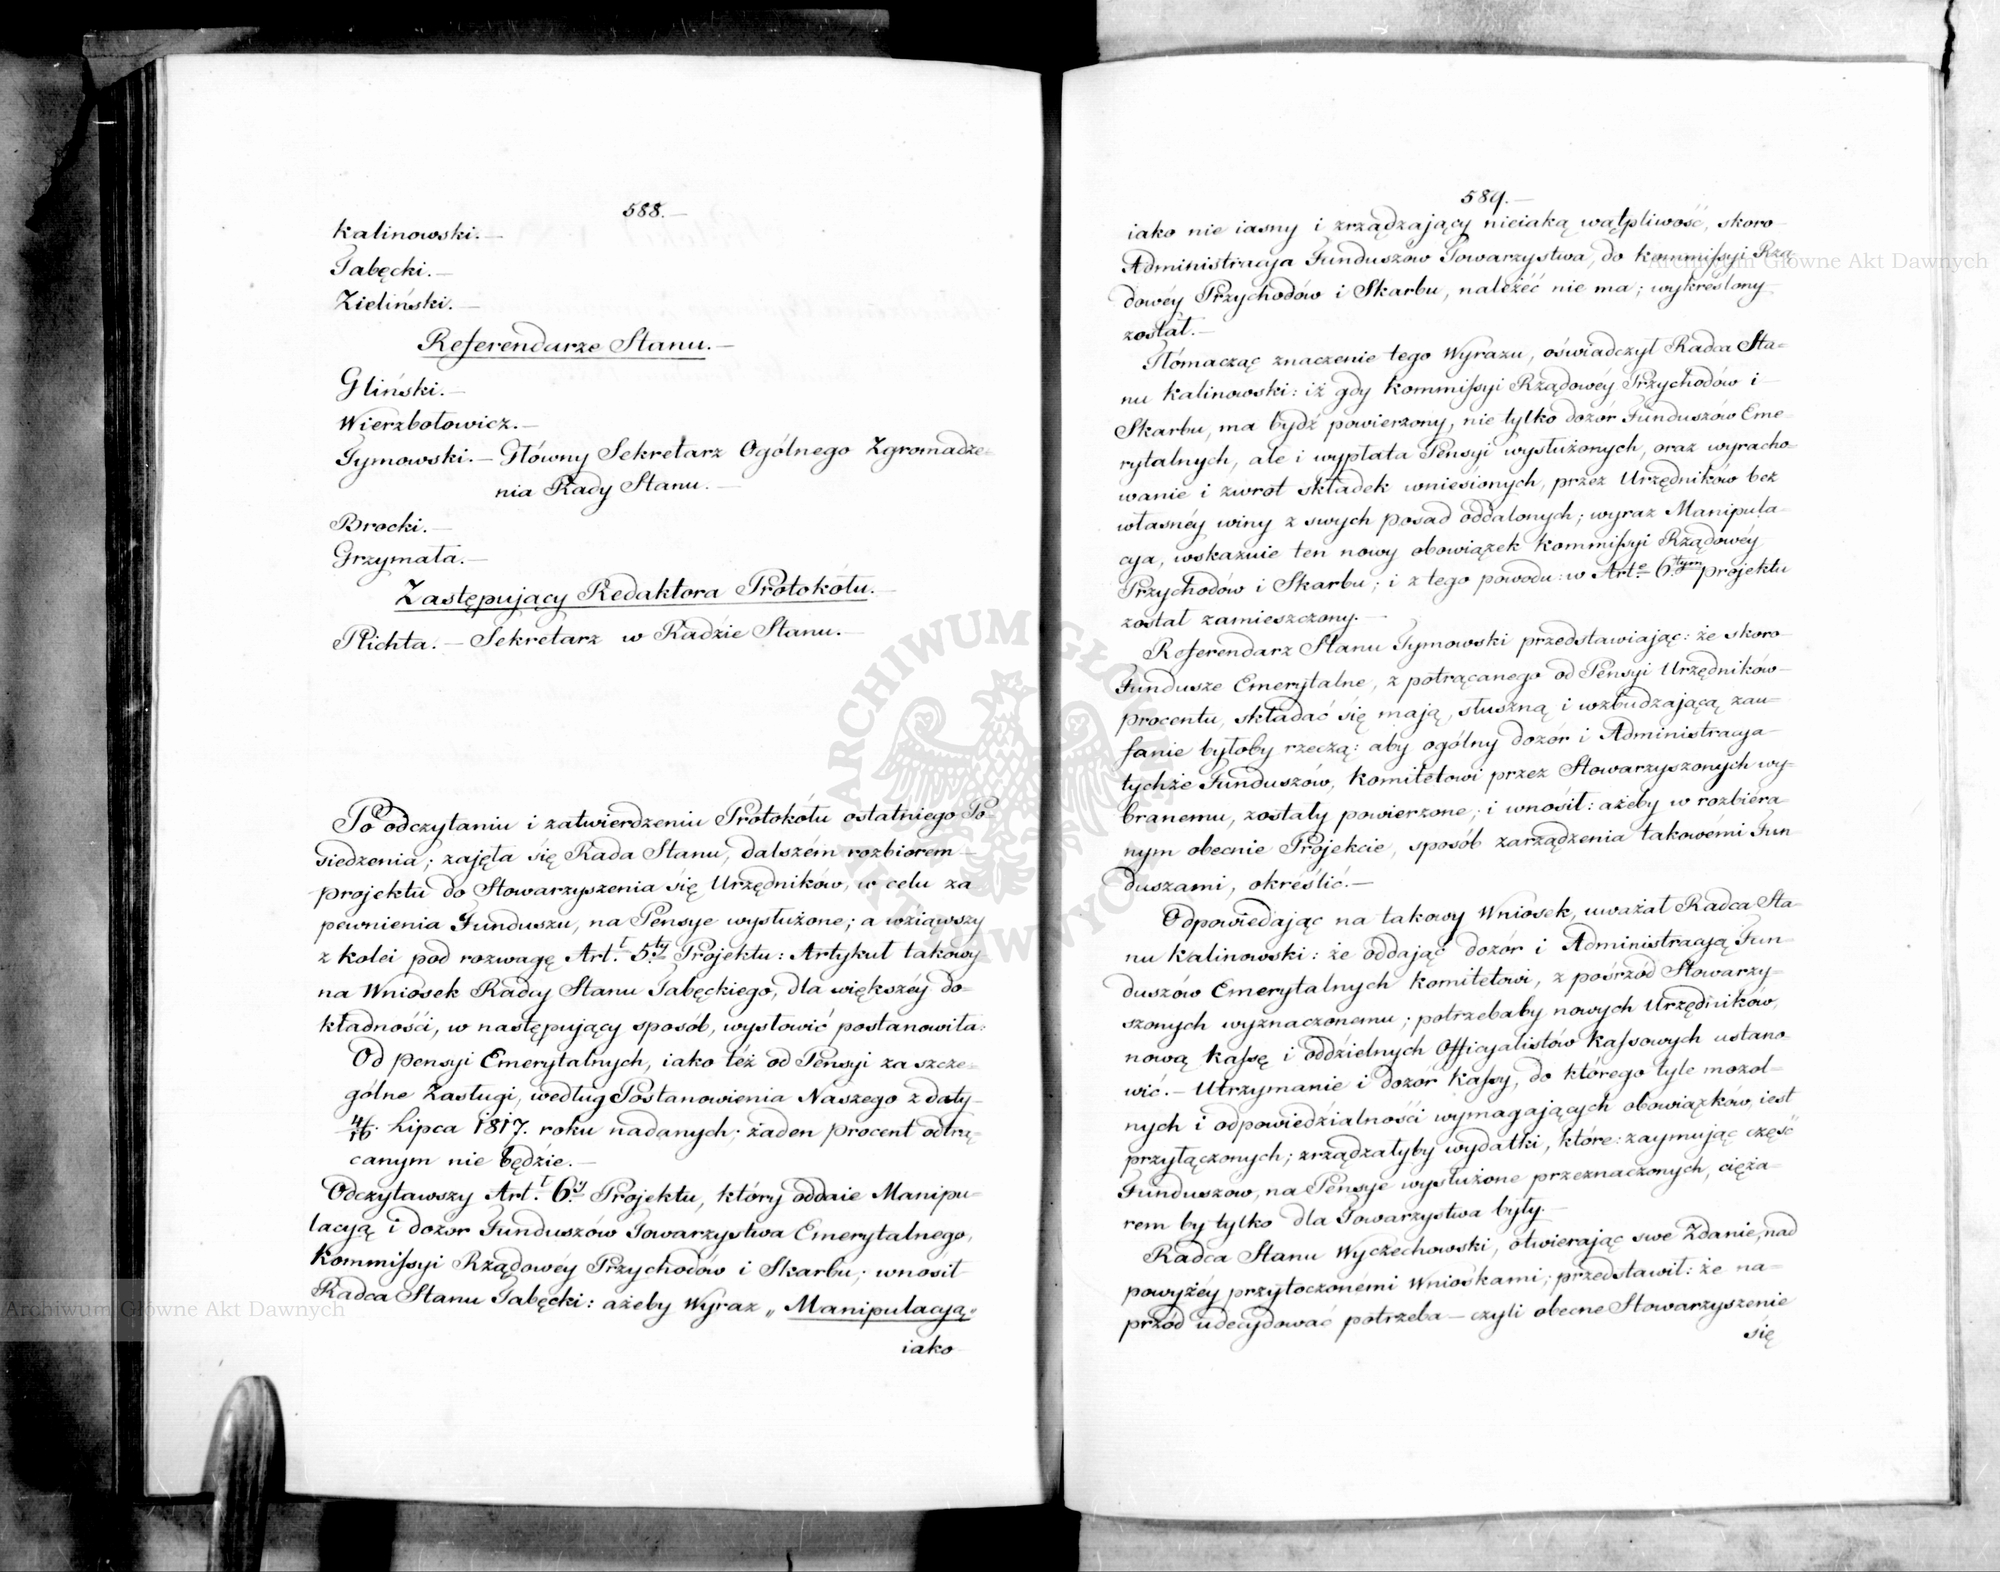 588.—
Kalinowski.—
Tabęcki.—
Zieliński.—
Referendarze Stanu.—
Gliński.—
Wierzbołowicz.—
Tymowski.— Główny Sekretarz Ogólnego Zgromadze-
nia Rady Stanu.—
Brocki.—
Grzymała.—
Zastępujący Redaktora Protokółu.—
Plichta.— Sekretarz w Radzie Stanu.—
Po odczytaniu i zatwierdzeniu Protokółu ostatniego Po-
siedzenia; zajęła się Rada Stanu, dalszém rozbiorem—
projektu do Stowarzyszenia się Urzędników, w celu za
pewnienia Funduszu, na Pensye wysłużone; a wziąwszy
z kolei pod rozwagę Art.ł 5.ty Projektu: Artykuł takowy
na Wniosek Radcy Stanu Tabęckiego, dla większéy do-
kładności, w następujący sposób, wysłowić postanowiła:
Od pensyi Emerytalnych, iako też od Pensyi za szcze-
gólne Zasługi, według Postanowienia Naszego z daty—
4/16. Lipca 1817. roku nadanych; żaden procent odtrą-
canym nie będzie.—
Odczytawszy Art.ł 6.y Projektu, który oddaie Manipu-
lacyą i dozor Funduszów Towarzystwa Emerytalnego,
Kommissyi Rządowéy Przychodów i Skarbu; wnosił
Radca Stanu Tabęcki: ażeby Wyraz „Manipulacyą"
iako
589.—
iako nie iasny i zrządzający nieiaką wątpliwość, skoro
Administracya Funduszow Towarzystwa, do Kommissyi Rzą
dowéy Przychodów i Skarbu, należéć nie ma; wykreślony
został.—
Tłómacząc znaczenie tego Wyrazu, oświadczył Radca Sta-
nu Kalinowski: iż gdy Kommissyi Rządowéy Przychodów i—
Skarbu, ma bydź powierzony, nie tylko dozór Funduszów Eme-
rytalnych, ale i wypłata Pensyi wysłużonych, oraz wyracho-
wanie i zwrot składek wniesionych, przez Urzędników bez
własnéy winy z swych posad oddalonych; wyraz Manipula-
cya, wskazuie ten nowy obowiązek Kommissyi Rządowéy
Przychodów i Skarbu; i z tego powodu: w Art.e 6.tym projektu
został zamieszczony.—
Referendarz Stanu Tymowski przedstawiając: że skoro
Fundusze Emerytalne, z potrącanego od Pensyi Urzędników—
procentu, składać się mają, słuszną i wzbudzającą zau-
fanie byłoby rzeczą: aby ogólny dozór i Administracya—
tychże Funduszów, Komitetowi przez Stowarzyszonych wy-
branemu, zostały powierzone; i wnosił: ażeby w rozbiera-
nym obecnie Projekcie, sposób zarządzenia takowemi Fun
duszami, określić.—
Odpowiedając na takowy Wniosek, uważał Radca Sta-
nu Kalinowski: że oddając dozór i Administracyą Fun-
duszów Emerytalnych Komitetowi, z pośrzód Stowarzy-
szonych wyznaczonemu; potrzebaby nowych Urzędników,
nową Kassę i oddzielnych Officyalistów Kassowych ustano-
wić.— Utrzymanie i dozór Kassy, do którego tyle mozol-
nych i odpowiedzialności wymagających obowiązków, iest
przyłączonych; zrządzałyby wydatki, które: zaymując część
Funduszow, na Pensye wysłużone przeznaczonych, cięża-
rem by tylko dla Towarzystwa były.—
Radca Stanu Wyczechowski, otwierając swe Zdanie, nad
powyżéy przytoczonémi Wnioskami; przedstawił: że na-
przód udecydować potrzeba— czyli obecne Stowarzyszenie
się
ARCHIWUM GŁÓWNE AKT DAWNYCH W WARSZAWIE
Archiwum Główne Akt Dawnych
Archiwum Główne Akt Dawnych